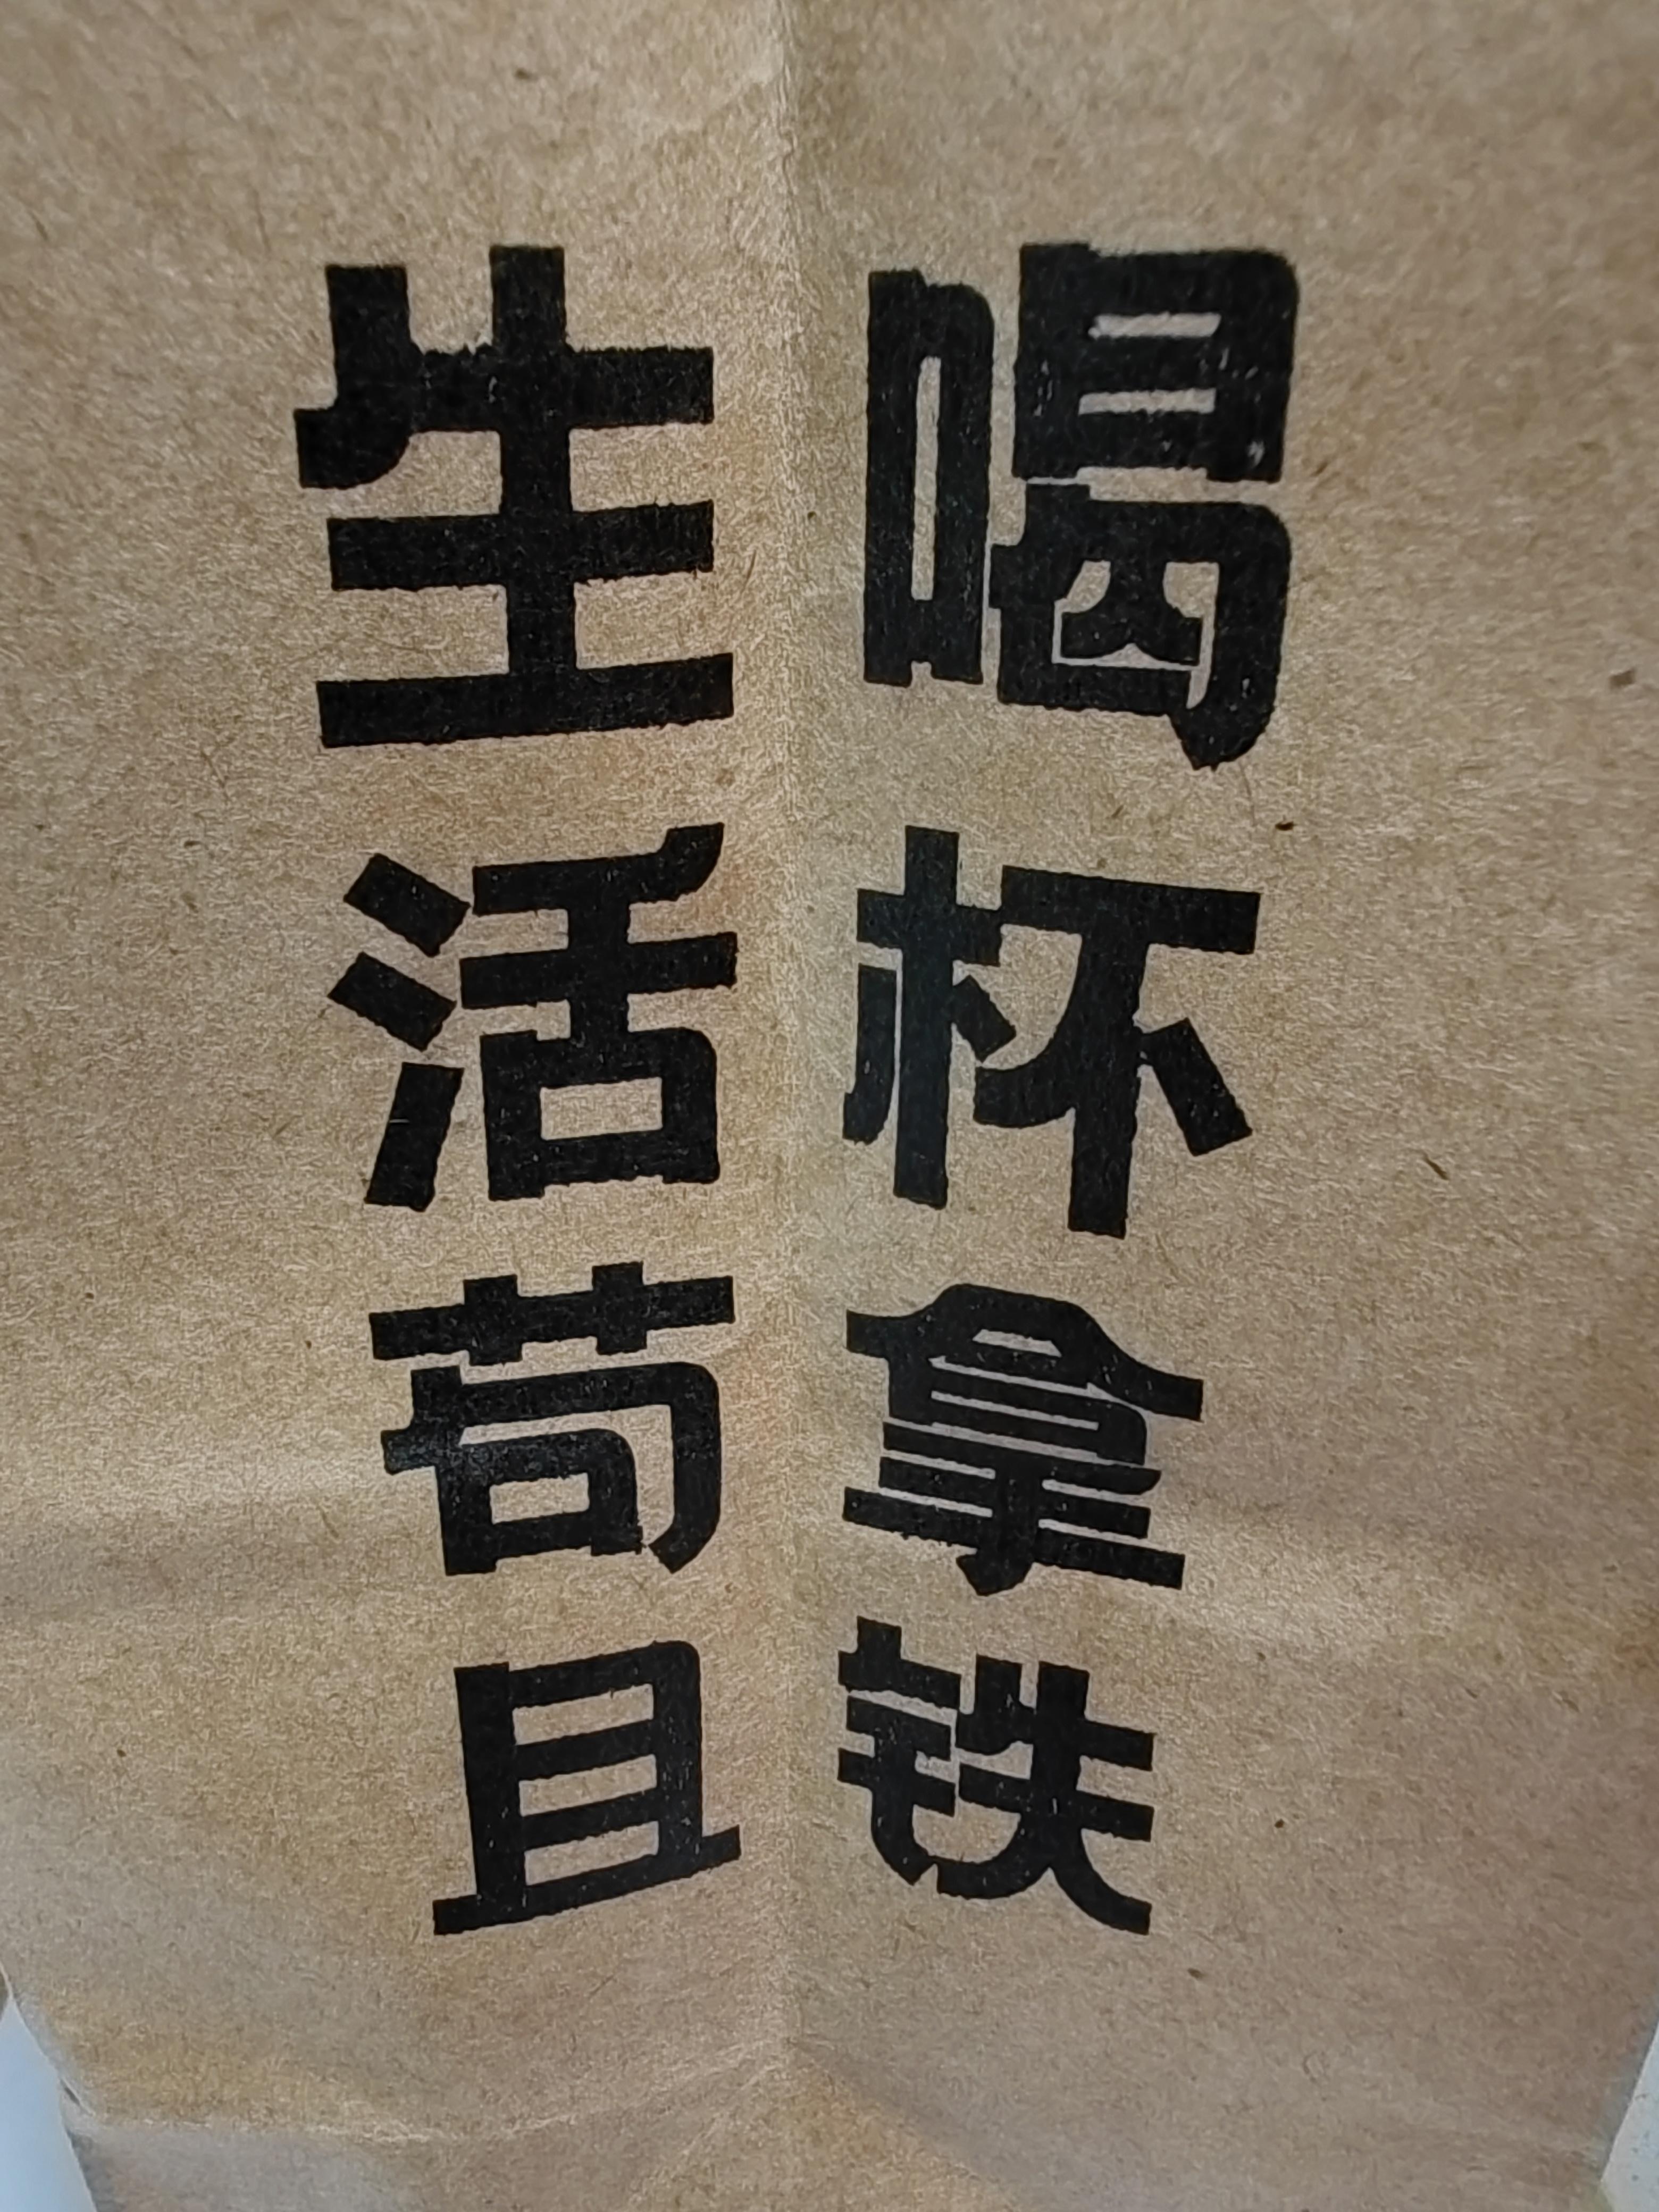 生活苟且
喝杯拿铁